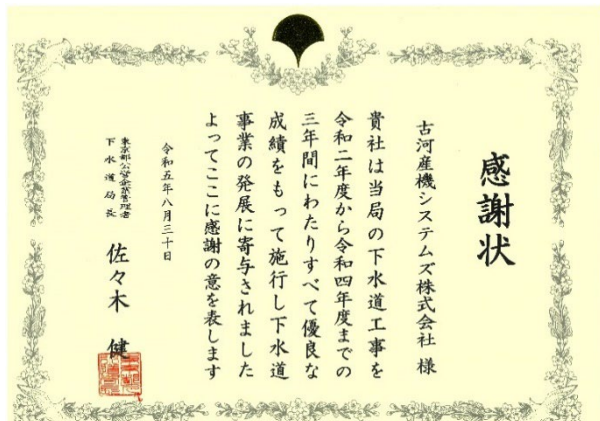 感謝状
古河産機システムズ株式会社 様
貴社は当局の下水道工事を
令和二年度から令和四年度までの
三年間にわたりすべて優良な
成績をもって施行し下水道
事業の発展に寄与されました
よってここに感謝の意を表します
令和五年八月三十日
東京都公営企業管理者
下水道局長
佐々木 健